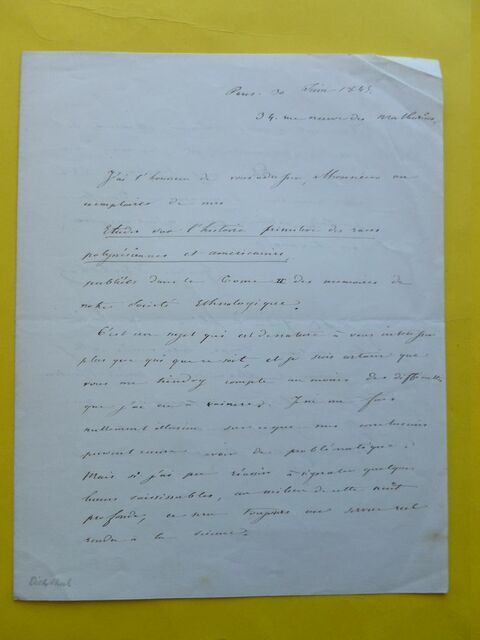 Paris. 30 Juin 1845.
34. rue neuve des Mathurins.
J'ai l'honneur de vous adresser, Monsieur un
exemplaire de mes
Etudes sur l'histoire primitive des races
polynésiennes et américaines,
publiées dans le Tome II des mémoires de
notre Société Ethnologique.
C'est un sujet qui est de nature à vous intéresser
plus que qui que ce soit, et je suis certain que
vous me tiendrez compte au moins des difficultés
que j'ai eu à vaincre. Je ne me fais
nullement illusion sur ce que mes conclusions
peuvent encore avoir de problématique.
Mais si j'ai pu réussir à signaler quelques
lueurs saisissables, au milieu de cette nuit
profonde, ce sera toujours un service réel
rendu à la science.